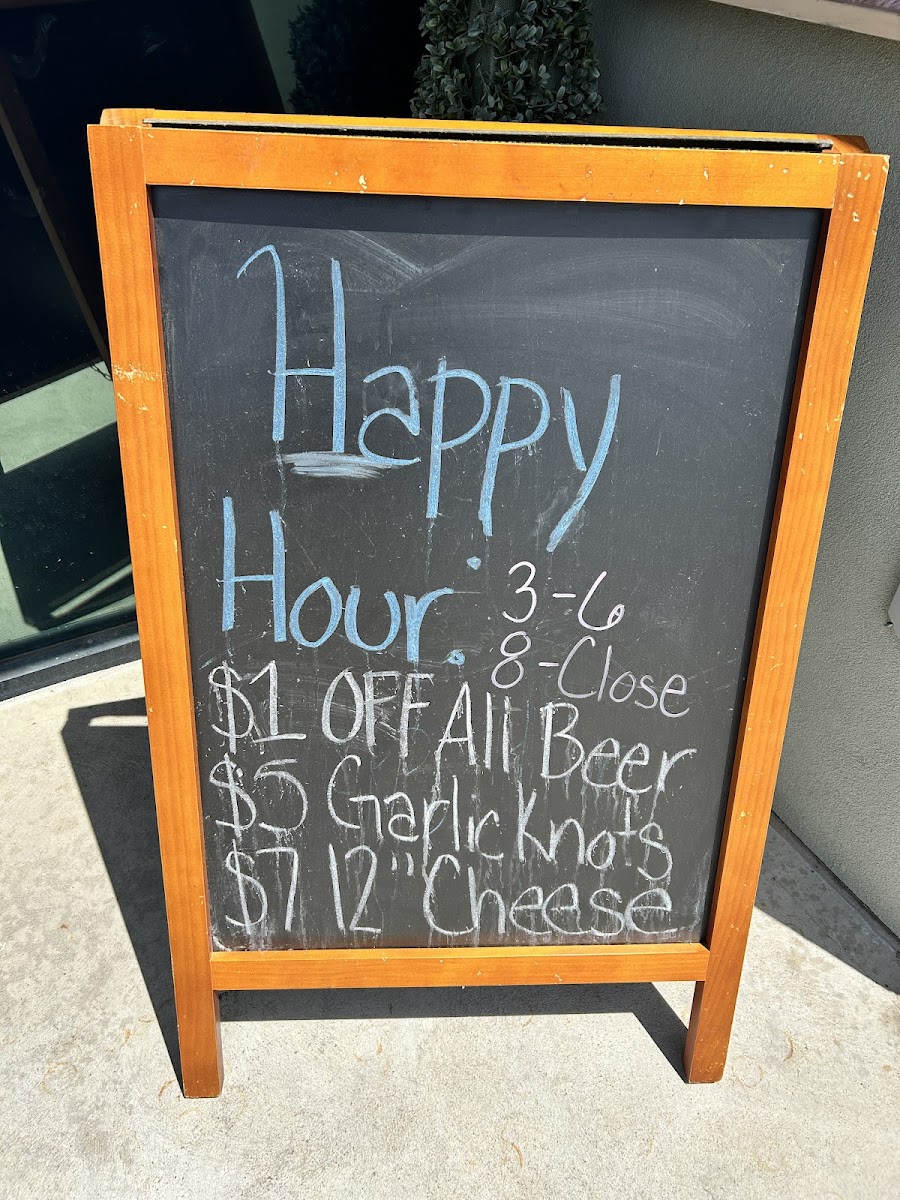 Happy
Hour:
3-6
8-Close
$1 OFF All Beer
$5 Garlic Knots
$7 12" Cheese